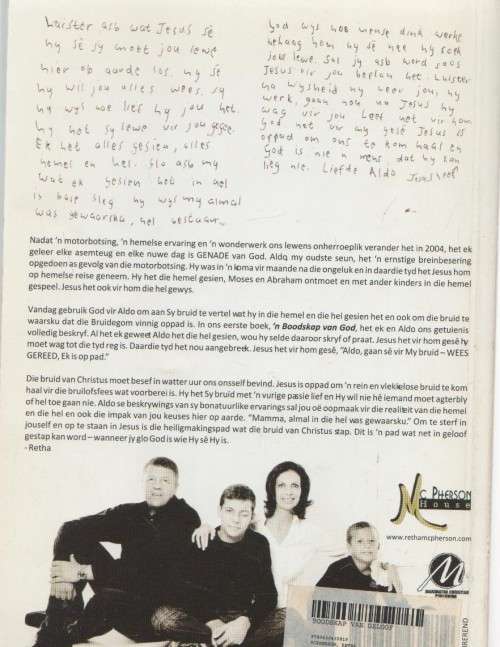 Luister asb wat Jesus sê
hy sê sy moet jou lewe
hier op aarde los. hy sê
hy wil jou alles wees. sy
hy wys hoe lief hy jou het.
hy het sy lewe vir jou gegee.
Ek het alles gesien, alles
hemel en hel. Glo asb my
wat ek gesien het in hel
is baie sleg hy wys my almal
was gewaarsku, hel bestaan.
God wys hoe mense dink werke
behaag hom hy sê nee hy soek
jou lewe. Sal jy asb word soos
Jesus vir jou beplan het. Luister
na wysheid hy leer jou, hy
werk, gaan nou na Jesus hy
wag vir jou Leef net vir hom
God het vir my gesê Jesus is
oppad om ons te kom haal en
God is nie 'n mens dat hy kan
lieg nie. Liefde Aldo Jesus leef
Nadat 'n motorbotsing, 'n hemelse ervaring en 'n wonderwerk ons lewens onherroeplik verander het in 2004, het ek
geleer elke asemteug en elke nuwe dag is GENADE van God. Aldo, my oudste seun, het 'n ernstige breinbesering
opgedoen as gevolg van die motorbotsing. Hy was in 'n koma vir maande na die ongeluk en in daardie tyd het Jesus hom
op hemelse reise geneem. Hy het die hemel gesien, Moses en Abraham ontmoet en met ander kinders in die hemel
gespeel. Jesus het ook vir hom die hel gewys.
Vandag gebruik God vir Aldo om aan Sy bruid te vertel wat hy in die hemel en die hel gesien het en ook om die bruid te
waarsku dat die Bruidegom vinnig oppad is. In ons eerste boek, 'n Boodskap van God, het ek en Aldo ons getuienis
volledig beskryf. Al het ek geweet Aldo het die hel gesien, wou hy selde daaroor skryf of praat. Jesus het vir hom gesê hy
moet wag tot die tyd reg is. Daardie tyd het nou aangebreek. Jesus het vir hom gesê, "Aldo, gaan sê vir My bruid – WEES
GEREED, Ek is op pad."
Die bruid van Christus moet besef in watter uur ons onsself bevind. Jesus is oppad om 'n rein en vlekkelose bruid te kom
haal vir die bruilofsfees wat voorberei is. Hy het Sy bruid met 'n vurige passie lief en Hy wil nie hê iemand moet agterbly
of hel toe gaan nie. Aldo se beskrywings van sy bonatuurlike ervarings sal jou oë oopmaak vir die realiteit van die hemel
en die hel en ook die impak van jou keuses hier op aarde. "Mamma, almal in die hel was gewaarsku." Om te sterf in
jouself en op te staan in Jesus is die heiligmakingspad wat die bruid van Christus stap. Dit is 'n pad wat net in geloof
gestap kan word – wanneer jy glo God is wie Hy sê Hy is.
- Retha
Mc PHERSON
House
www.rethamcpherson.com
BOODSKAP VAN GELOOF